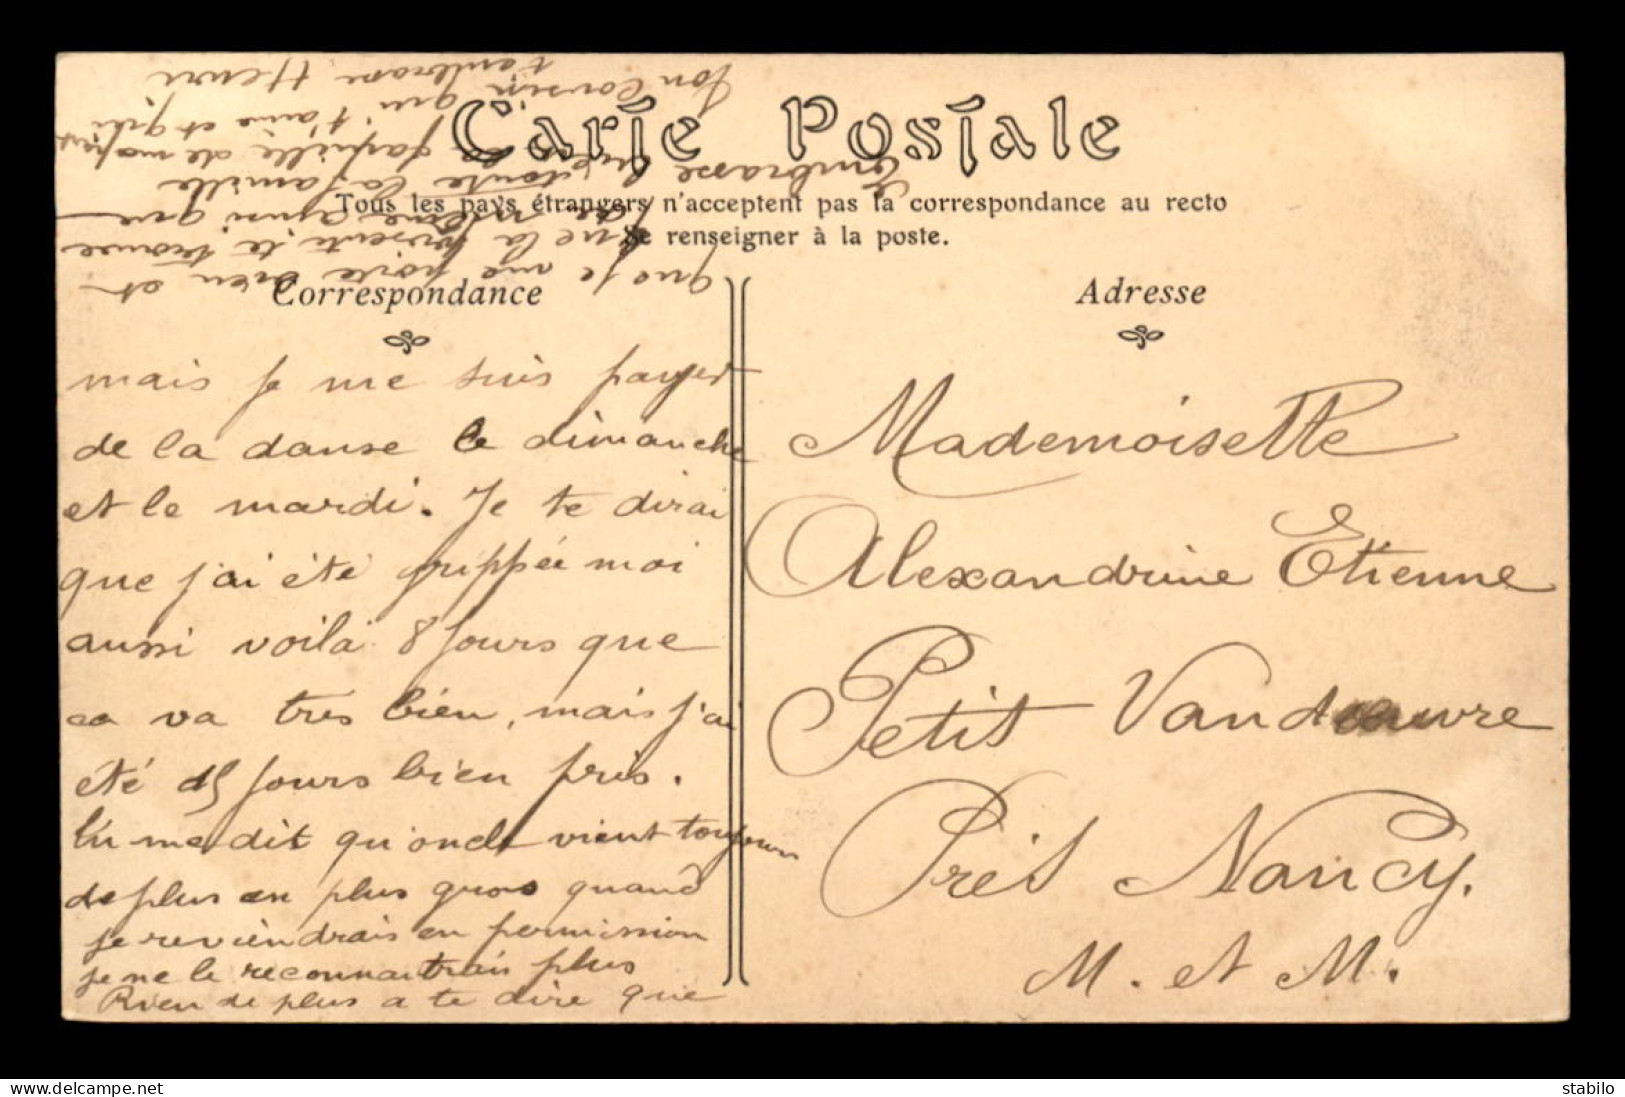 Carte Postale
Tous les pays étrangers n'acceptent pas la correspondance au recto
Se renseigner à la poste.
Correspondance
Adresse
mais je me suis payer
de la danse le dimanche
et le mardi. Je te dirai
que j'ai été grippée moi
aussi voila 8 jours que
ca va tres bien, mais j'ai
été 15 jours bien pris.
tu me dit qu'oncle vient toujours
de plus en plus gros quand
je reviendrais en permission
je ne le reconnaitrais plus
Rien de plus a te dire que
que je me porte bien et
que la presente te trouve
de même ainsi que
toute la famille
Embrasse la famille de ma part
Ton Cousin qui t'aime et qui
t'embrasse Henri
Mademoiselle
Alexandrine Etienne
Petit Vandœuvre
Près Nancy.
M. et M.
www.delcampe.net
stabilo